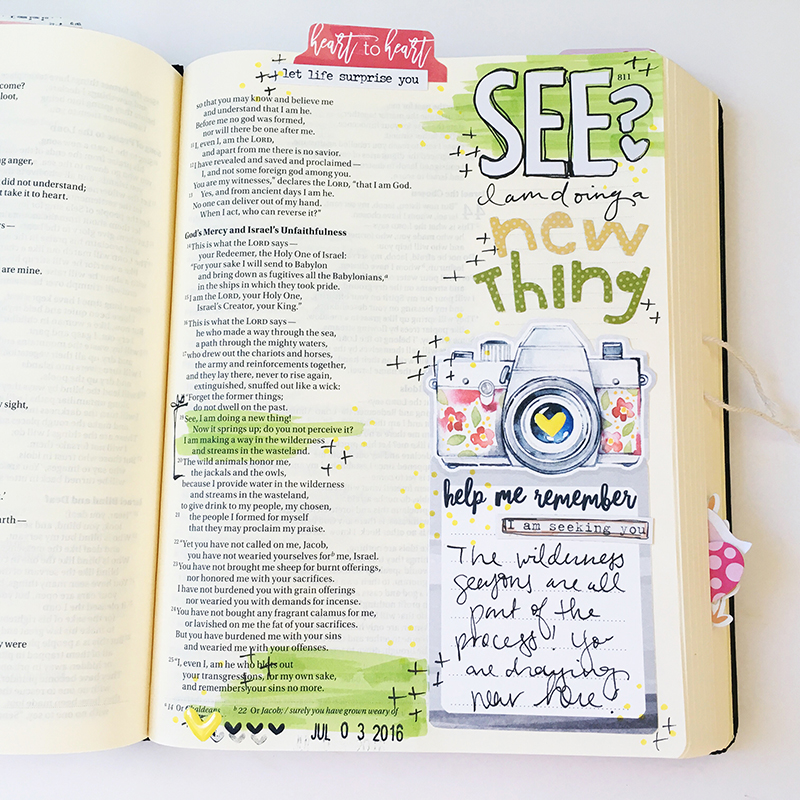 come?
loot,
ng anger,
did not understand;
t take it to heart.
s—
are mine.
y sight,
.'
arth—
y were
heart to heart
let life surprise you
so that you may know and believe me
and understand that I am he.
Before me no god was formed,
nor will there be one after me.
11 I, even I, am the LORD,
and apart from me there is no savior.
12 I have revealed and saved and proclaimed—
I, and not some foreign god among you.
You are my witnesses," declares the LORD, "that I am God.
13 Yes, and from ancient days I am he.
No one can deliver out of my hand.
When I act, who can reverse it?"
God's Mercy and Israel's Unfaithfulness
14 This is what the LORD says—
your Redeemer, the Holy One of Israel:
"For your sake I will send to Babylon
and bring down as fugitives all the Babylonians,a
in the ships in which they took pride.
15 I am the LORD, your Holy One,
Israel's Creator, your King."
16 This is what the LORD says—
he who made a way through the sea,
a path through the mighty waters,
17 who drew out the chariots and horses,
the army and reinforcements together,
and they lay there, never to rise again,
extinguished, snuffed out like a wick:
18 "Forget the former things;
do not dwell on the past.
19 See, I am doing a new thing!
Now it springs up; do you not perceive it?
I am making a way in the wilderness
and streams in the wasteland.
20 The wild animals honor me,
the jackals and the owls,
because I provide water in the wilderness
and streams in the wasteland,
to give drink to my people, my chosen,
21 the people I formed for myself
that they may proclaim my praise.
22 "Yet you have not called on me, Jacob,
you have not wearied yourselves forb me, Israel.
23 You have not brought me sheep for burnt offerings,
nor honored me with your sacrifices.
I have not burdened you with grain offerings
nor wearied you with demands for incense.
24 You have not bought any fragrant calamus for me,
or lavished on me the fat of your sacrifices.
But you have burdened me with your sins
and wearied me with your offenses.
25 "I, even I, am he who blots out
your transgressions, for my own sake,
and remembers your sins no more.
a 14 Or Chaldeans b 22 Or Jacob; / surely you have grown weary of
JUL 0 3 2016
811
SEE?
I am doing a
new
Thing
help me remember
I am seeking you
The wilderness
seasons are all
part of the
process! You
are drawing
near here!